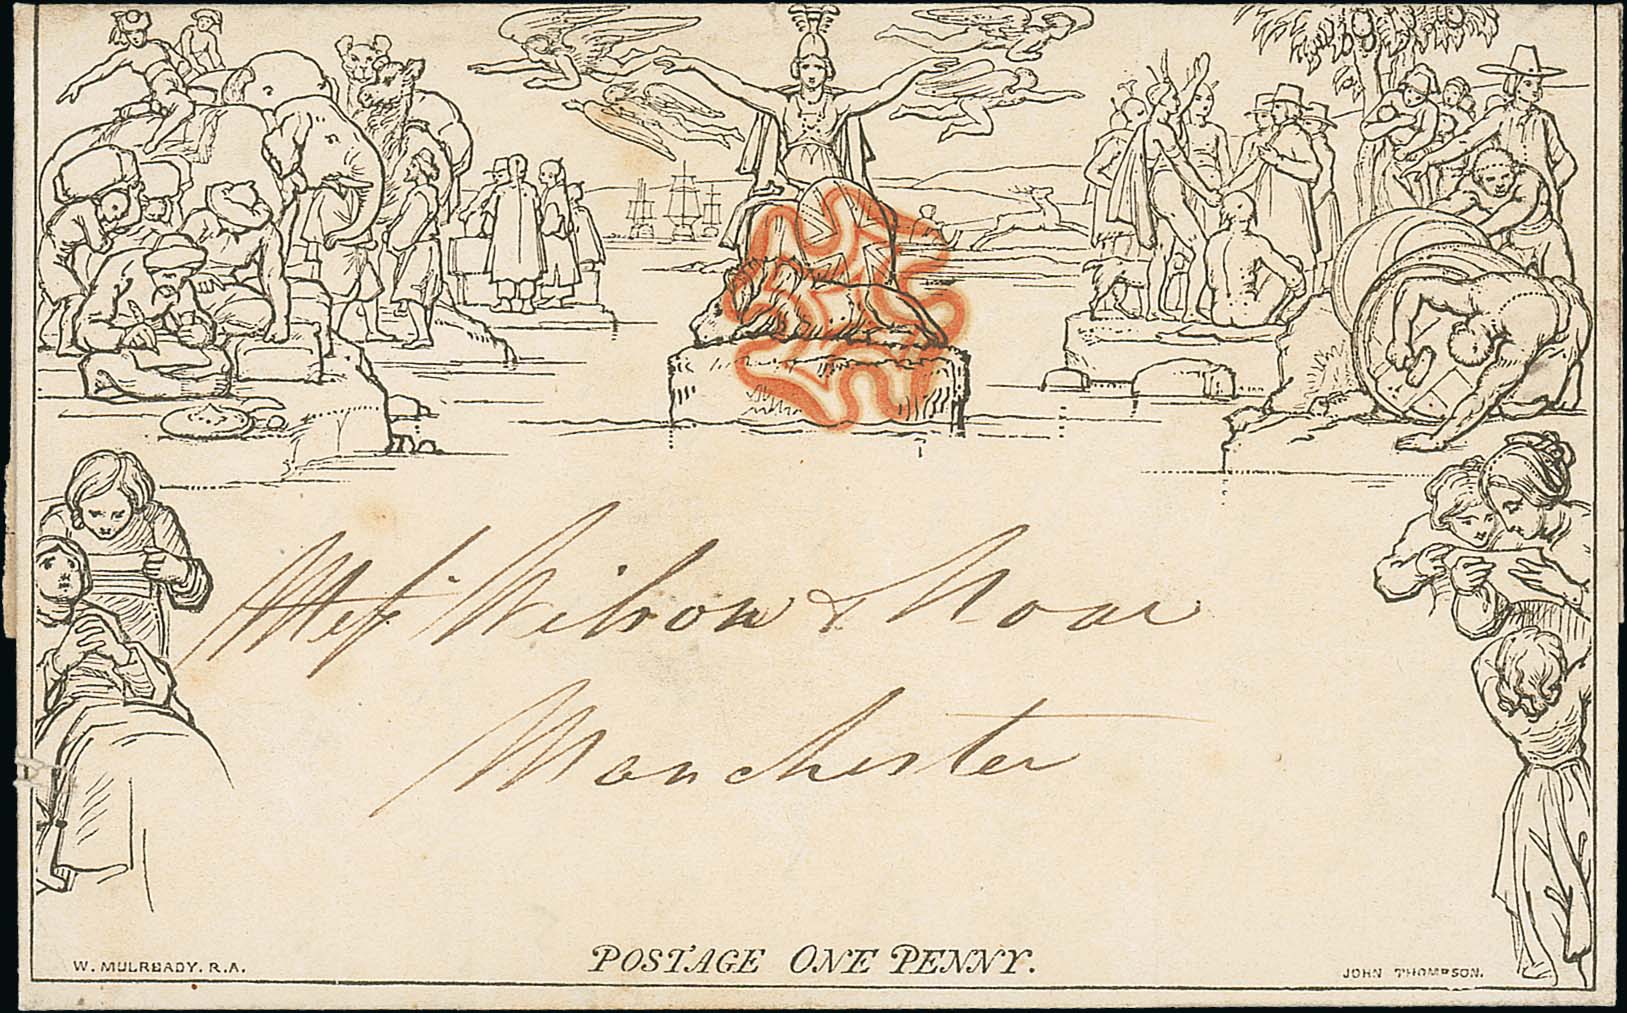 Messʳˢ Wilson & Moar
Manchester
POSTAGE ONE PENNY.
W. MULREADY. R.A.
JOHN THOMPSON.